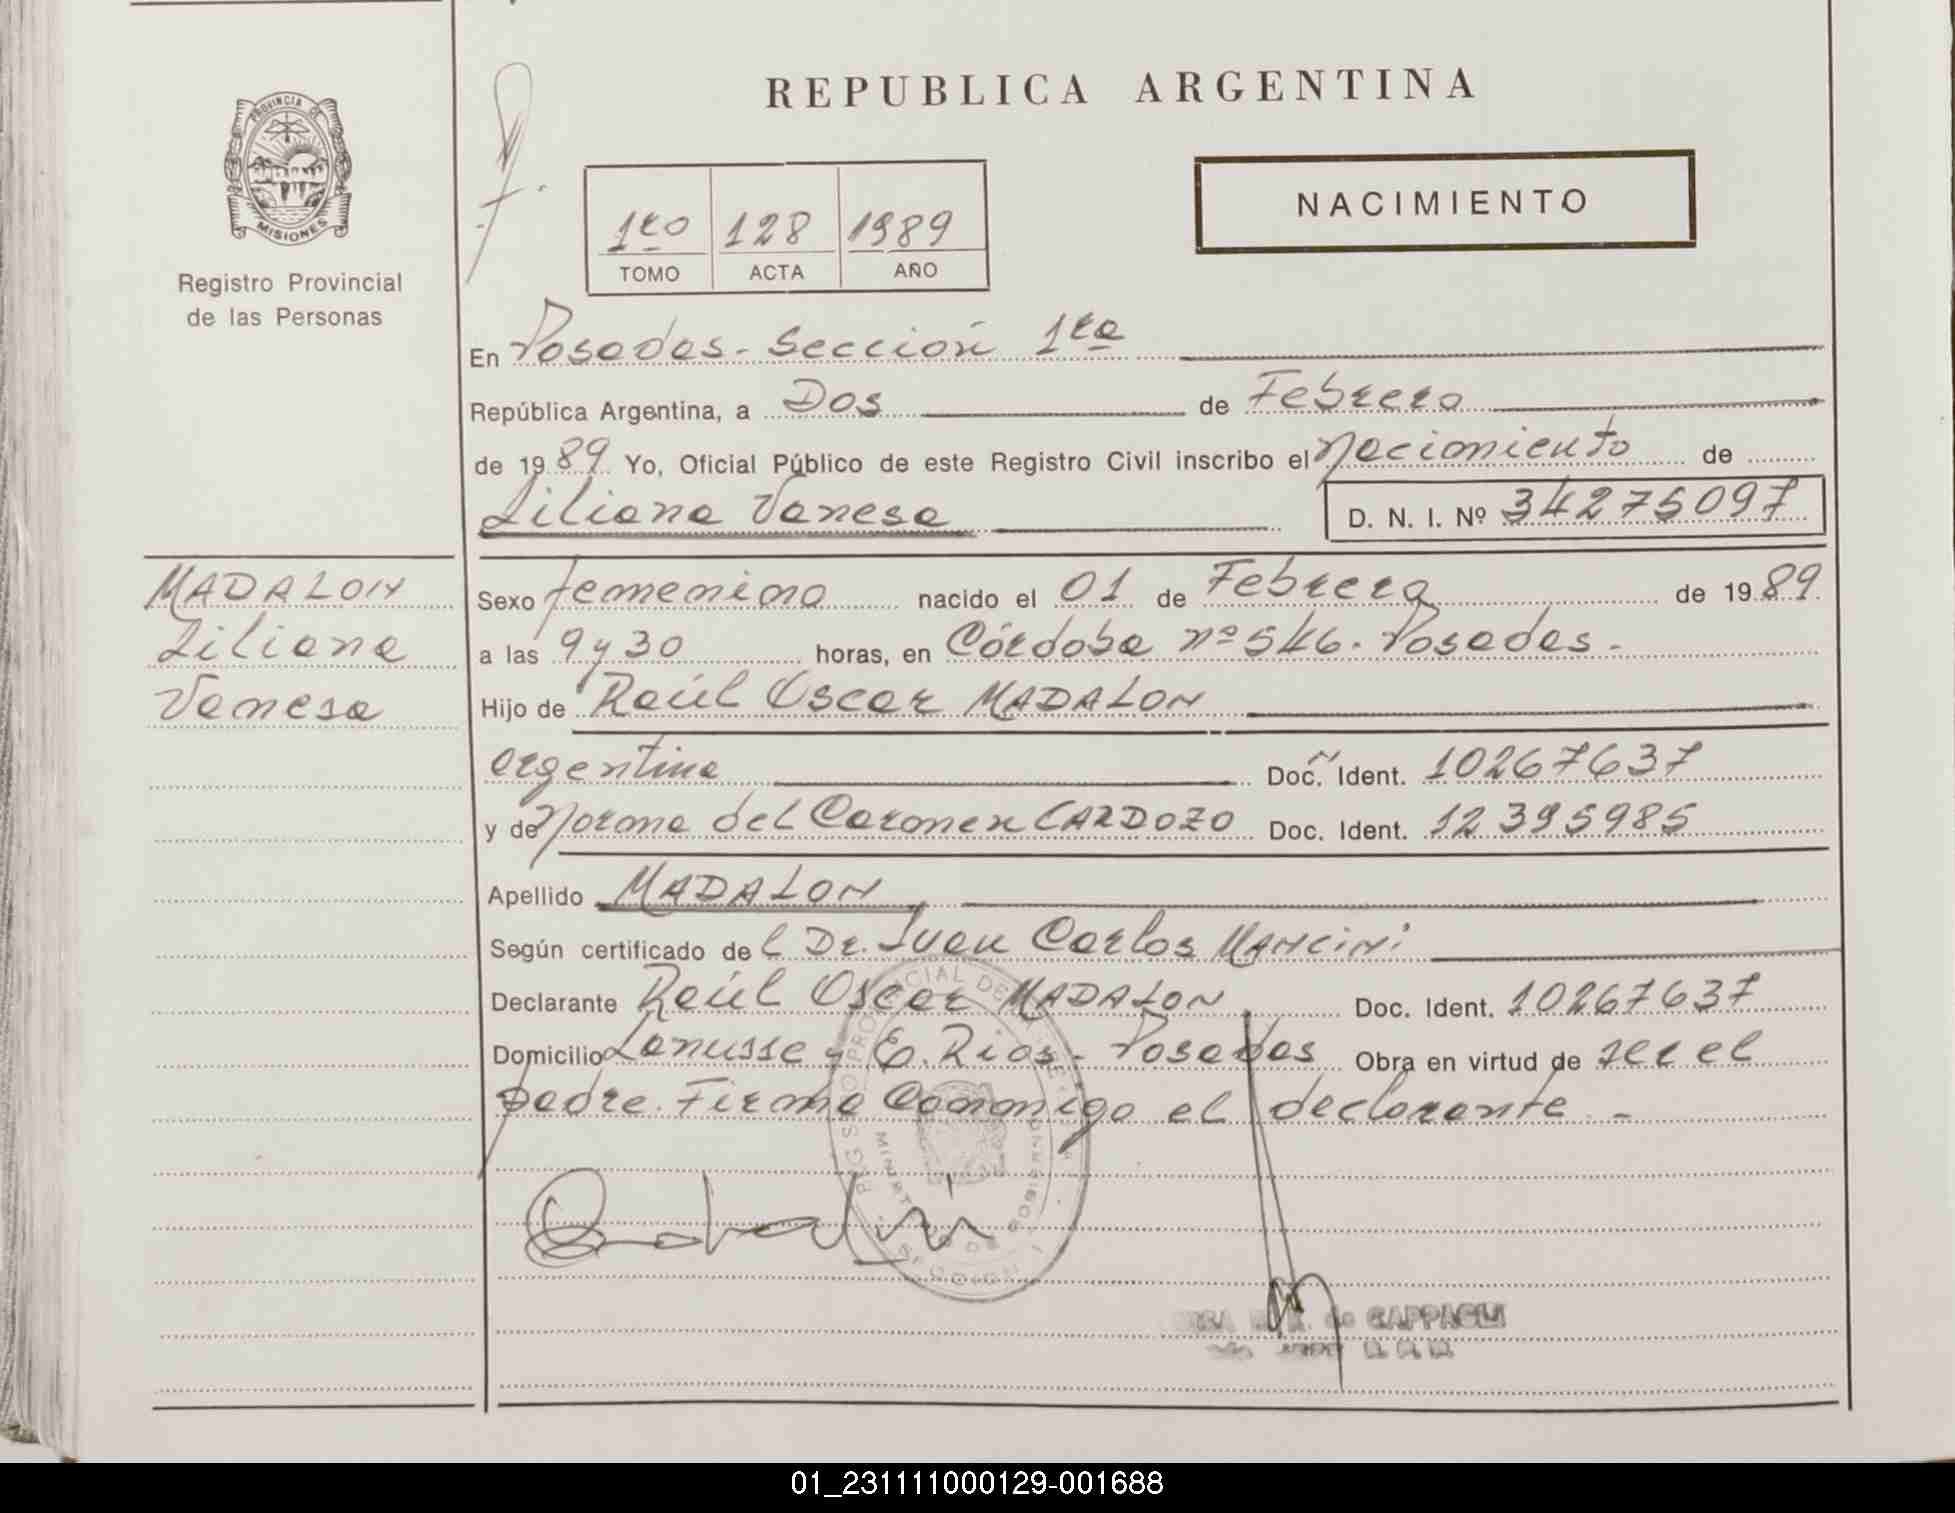 REPUBLICA ARGENTINA
PROVINCIA DE
MISIONES
Registro Provincial
de las Personas
1ro 128 1989
TOMO ACTA AÑO
NACIMIENTO
En Posadas - Sección 1ra
República Argentina, a Dos de Febrero
de 1989 Yo, Oficial Público de este Registro Civil inscribo el Nacimiento de
Liliana Vanesa D. N. I. Nº 34275097
MADALON
Liliana
Vanesa
Sexo femenino nacido el 01 de Febrero de 1989
a las 9 y 30 horas, en Córdoba nº 546. Posadas -
Hijo de Raúl Oscar MADALON
argentino Doc. Ident. 10267637
y de Norma del Carmen CARDOZO Doc. Ident. 12395985
Apellido MADALON
Según certificado del Dr. Juan Carlos MANCINI
Declarante Raúl Oscar MADALON Doc. Ident. 10267637
Domicilio Lanusse y E. Rios - Posadas Obra en virtud de ser el
padre. Firma Conmigo el declarante. -
SECCION
de CAPPAGLI
01_231111000129-001688